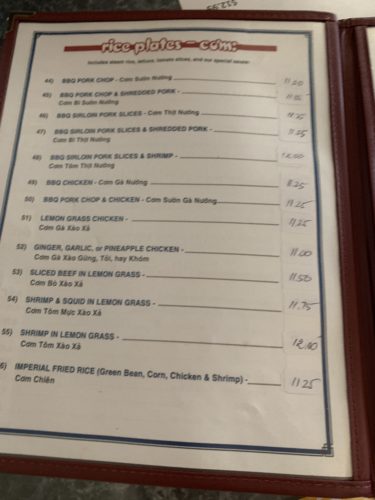 rice plates - cơm:
Includes steam rice, lettuce, tomato slices, and our special sauce
44) BBQ PORK CHOP - Cơm Sườn Nướng 11.00
45) BBQ PORK CHOP & SHREDDED PORK -
Cơm Bì Sườn Nướng
46) BBQ SIRLOIN PORK SLICES - Cơm Thịt Nướng 11.25
47) BBQ SIRLOIN PORK SLICES & SHREDDED PORK - 11.25
Cơm Bì Thịt Nướng
48) BBQ SIRLOIN PORK SLICES & SHRIMP - 12.00
Cơm Tôm Thịt Nướng
49) BBQ CHICKEN - Cơm Gà Nướng 11.25
50) BBQ PORK CHOP & CHICKEN - Cơm Sườn Gà Nướng 11.25
51) LEMON GRASS CHICKEN - 11.25
Cơm Gà Xào Xả
52) GINGER, GARLIC, or PINEAPPLE CHICKEN - 11.00
Cơm Gà Xào Gừng, Tỏi, hay Khóm
53) SLICED BEEF IN LEMON GRASS - 11.50
Cơm Bò Xào Xả
54) SHRIMP & SQUID IN LEMON GRASS - 11.75
Cơm Tôm Mực Xào Xả
55) SHRIMP IN LEMON GRASS - 12.00
Cơm Tôm Xào Xả
6) IMPERIAL FRIED RICE (Green Bean, Corn, Chicken & Shrimp) - 11.25
Cơm Chiên